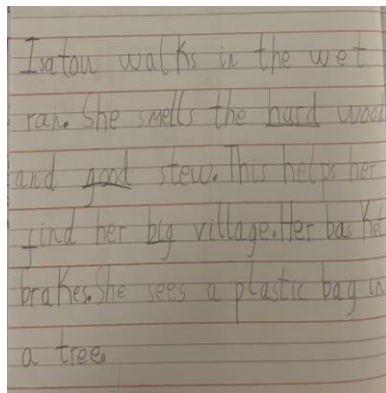 Isatou walks in the wet
ran. She smells the hard wood
and good stew. This helps her
find her big village. Her basket
brakes. She sees a plastic bag in
a tree.